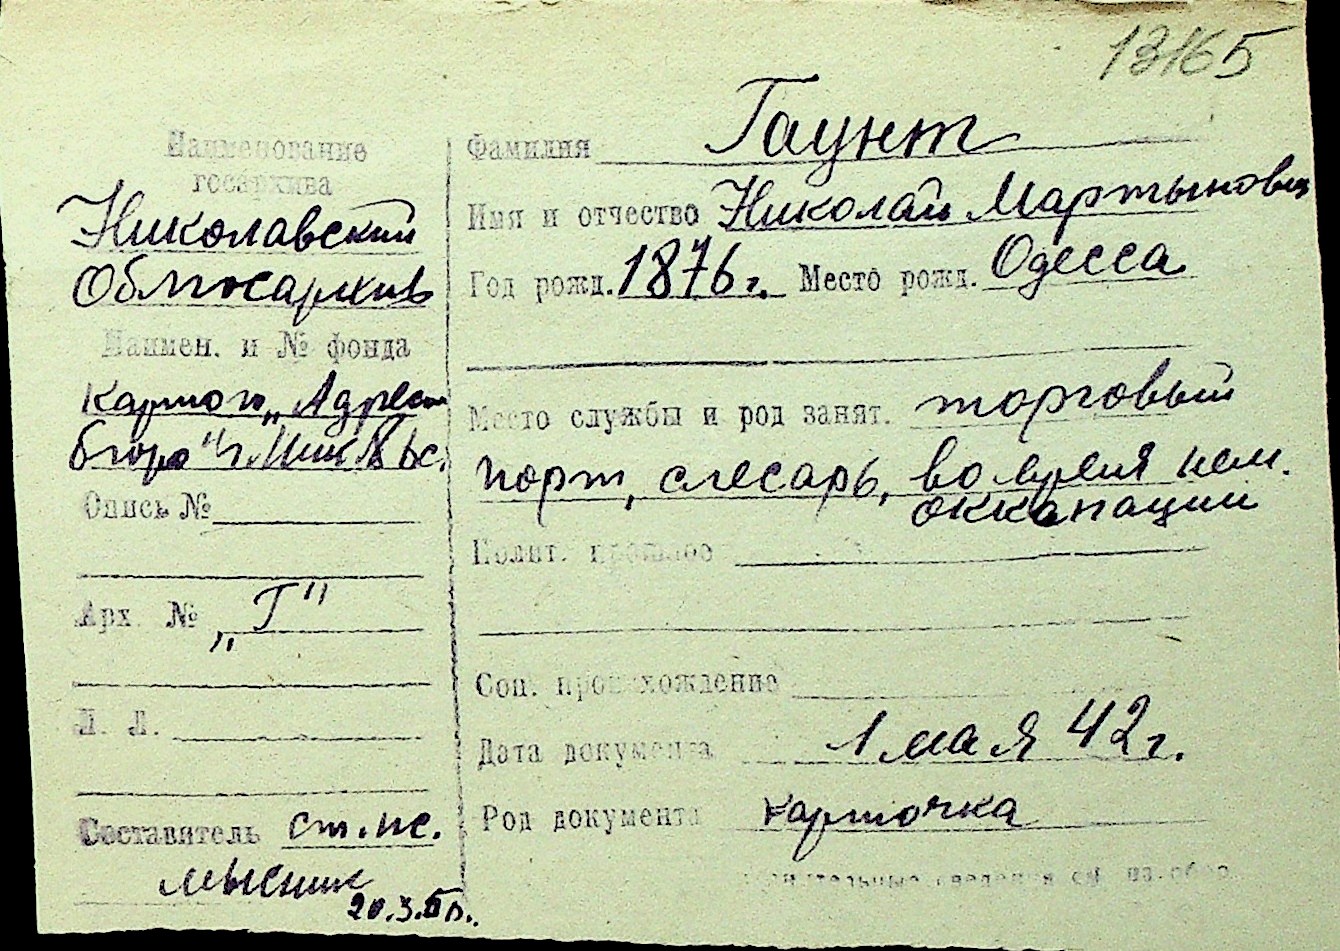 13165
Наименование
госархива
Николавский
Облгосархив
Наимен. и № фонда
Картот. „Адресн
бюро" г.
Опись №
Арх. № „Г"
Л. Л.
Составитель ст. нс.
мысник
20.3.
Фамилия Гаунт
Имя и отчество Николай Мартынович
Год рожд. 1876 г. Место рожд. Одесса
Место службы и род занят. торговый
порт, слесарь, во время нем.
оккапации
Полит. прошлое
Соц. происхождение
Дата документа 1 мая 42 г.
Род документа карточка
сведения см. на обор.